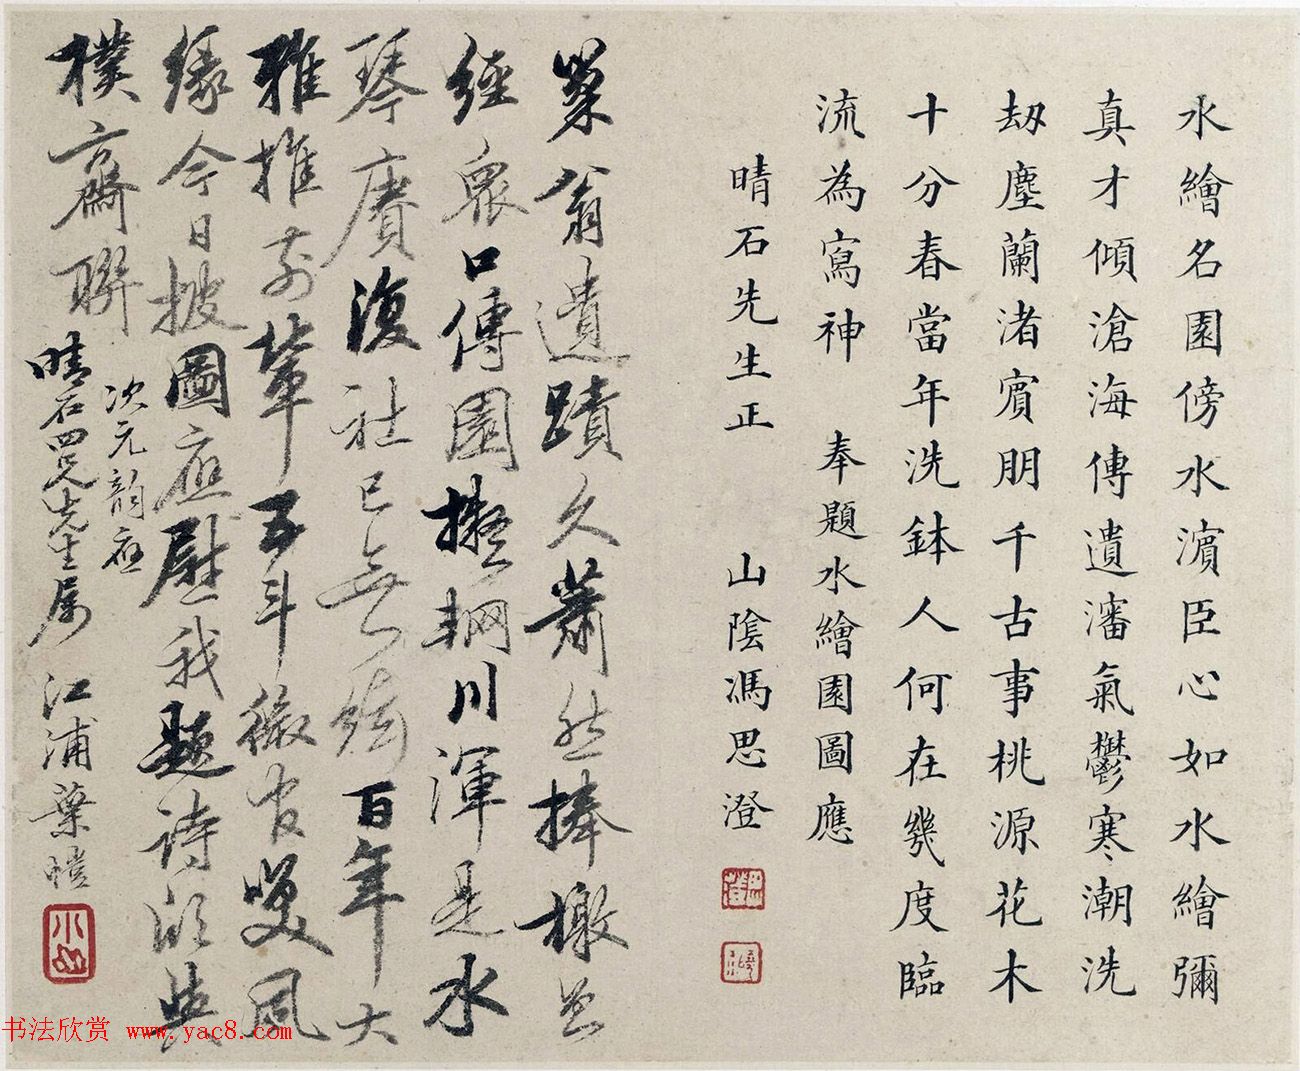 水繪名園傍水濱臣心如水繪彌
真才傾滄海傳遺瀋氣鬱寒潮洗
劫塵蘭渚賓朋千古事桃源花木
十分春當年洗鉢人何在幾度臨
流為寫神 奉題水繪園圖應
晴石先生正 山陰馮思澄
巢翁遺蹟久蕭然捧檄
經衆口傳園擬輞川渾是水
琴賡復社已無絃百年大
雅推前輩五斗微官笑夙
緣今日披圖應慰我題詩
樸齋聯
次元韵應
晴石四兄先生属 江浦葉
书法欣赏 www.yac8.com